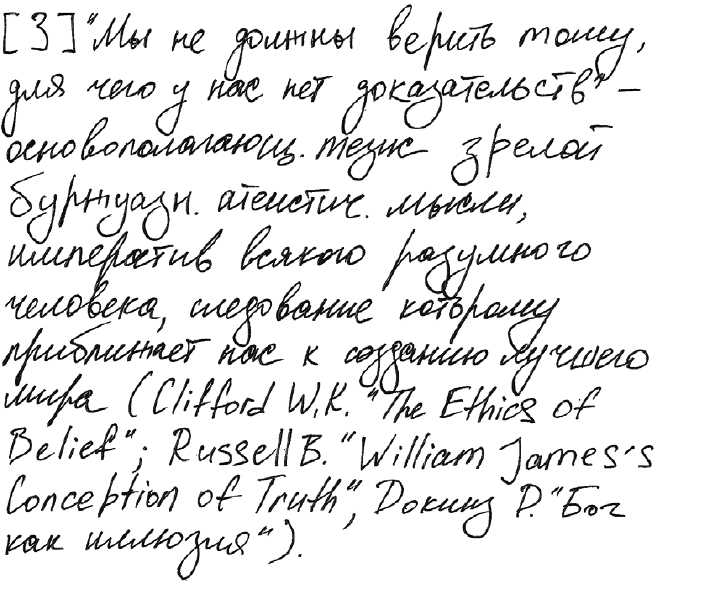 [3] "Мы не должны верить тому,
для чего у нас нет доказательств" –
основополагающ. тезис зрелой
буржуазн. атеистич. мысли,
императив всякого разумного
человека, следование которому
приближает нас к созданию лучшего
мира (Clifford W.K. "The Ethics of
Belief"; Russell B. "William James's
Conception of Truth", Докинз Р. "Бог
как иллюзия").